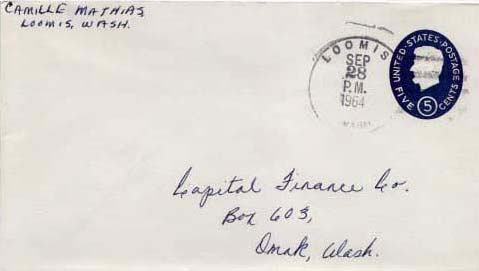 CAMILLE MATHIAS,
LOOMIS, WASH.
LOOMIS
SEP
28
P.M.
1964
WASH.
UNITED·STATES·POSTAGE
FIVE 5 CENTS
Capital Finance Co.
Box 603,
Omak, Wash.